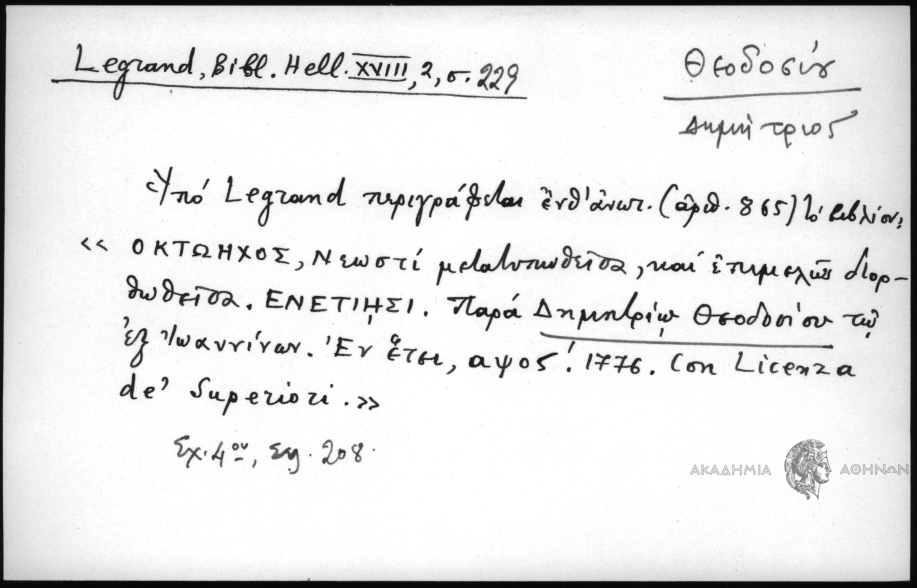 Legrand, Bibl. Hell. XVIII, 2, σ. 229
Θεοδοσίου
Δημήτριος
Ὑπό Legrand περιγράφεται ἐνθ' ἀνωτ. (ἀριθ. 865) τό βιβλίον:
« ΟΚΤΩΗΧΟΣ, Νεωστί μετατυπωθεῖσα, καί ἐπιμελῶς διορ-
θωθεῖσα. ΕΝΕΤΙΗΣΙ. Παρά Δημητρίῳ Θεοδοσίου τῷ
ἐξ Ἰωαννίνων. Ἐν ἔτει, αψος'. 1776. Con Licenza
de' Superiori. »
Σχ. 4ου, Σελ. 208.
ΑΚΑΔΗΜΙΑ ΑΘΗΝΩΝ